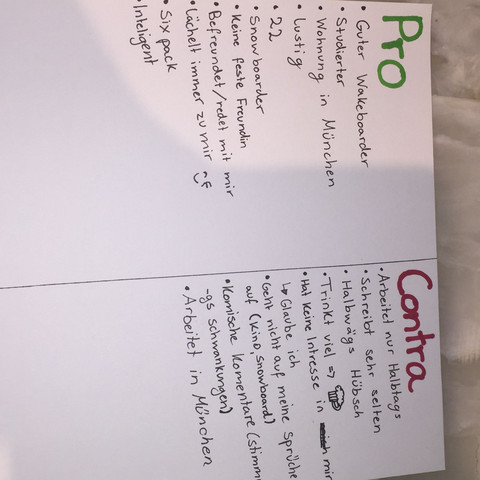 Pro
• Guter Wakeboarder
• Studierter
• Wohnung in München
• Lustig
• 22
• Snowboarder
• Keine feste Freundin
• Befreundet/redet mit mir
• Lächelt immer zu mir
• Six pack
• Inteligent
Contra
• Arbeitet nur Halbtags
• Schreibt sehr selten
• Halbwägs Hübsch
• Trinkt viel =>
• Hat keine Intresse in mir
↳ Glaube ich
• Geht nicht auf meine Sprüche
auf (Kino, Snowboard)
• Komische Komentare (stimmun
-gs schwankungen)
• Arbeitet in München